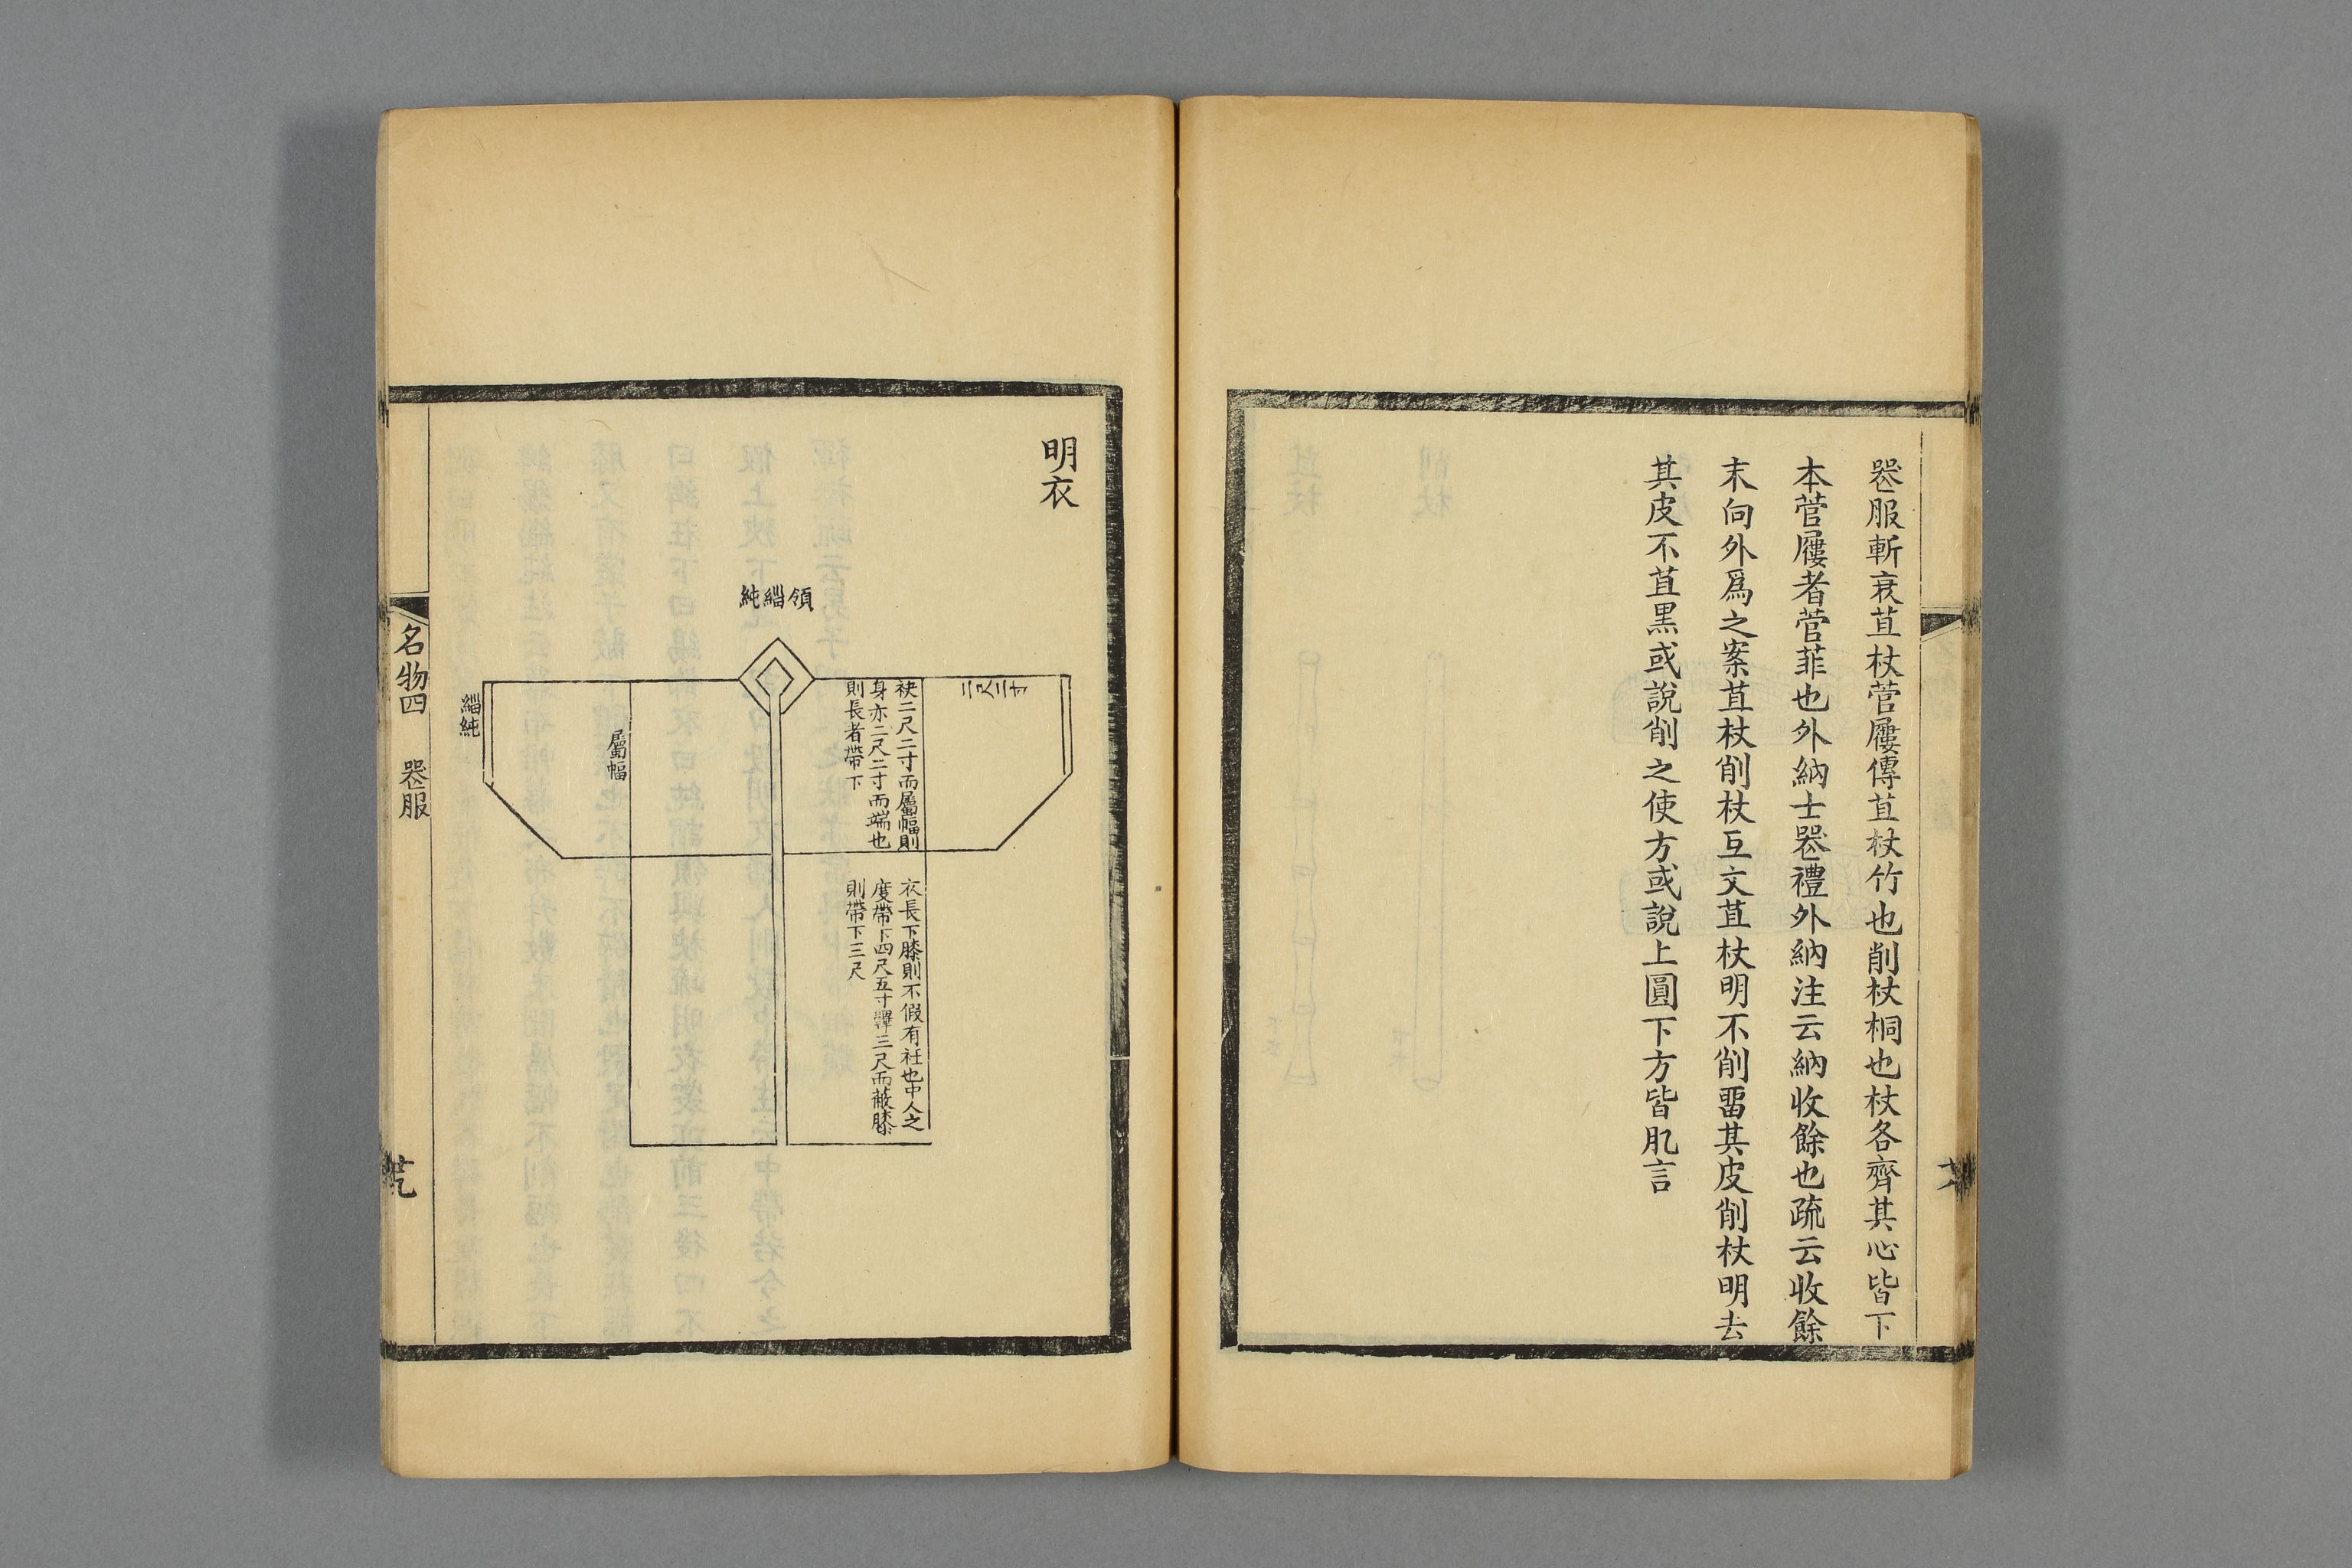 器服斬衰苴杖菅屨傳苴杖竹也削杖桐也杖各齊其心皆下
本菅屨者菅菲也外納士器禮外納注云納收餘也疏云收餘
末向外爲之案苴杖削杖互文苴杖明不削畱其皮削杖明去
其皮不苴黑或說削之使方或說上圓下方皆肊言
明衣
領緇純
二尺二寸
袂二尺二寸而屬幅則
身亦二尺二寸而端也
則長者帶下
屬幅
緇純
衣長下膝則不假有衽也中人之
度帶下四尺五寸韠三尺而蔽膝
則帶下三尺
名物四
器服